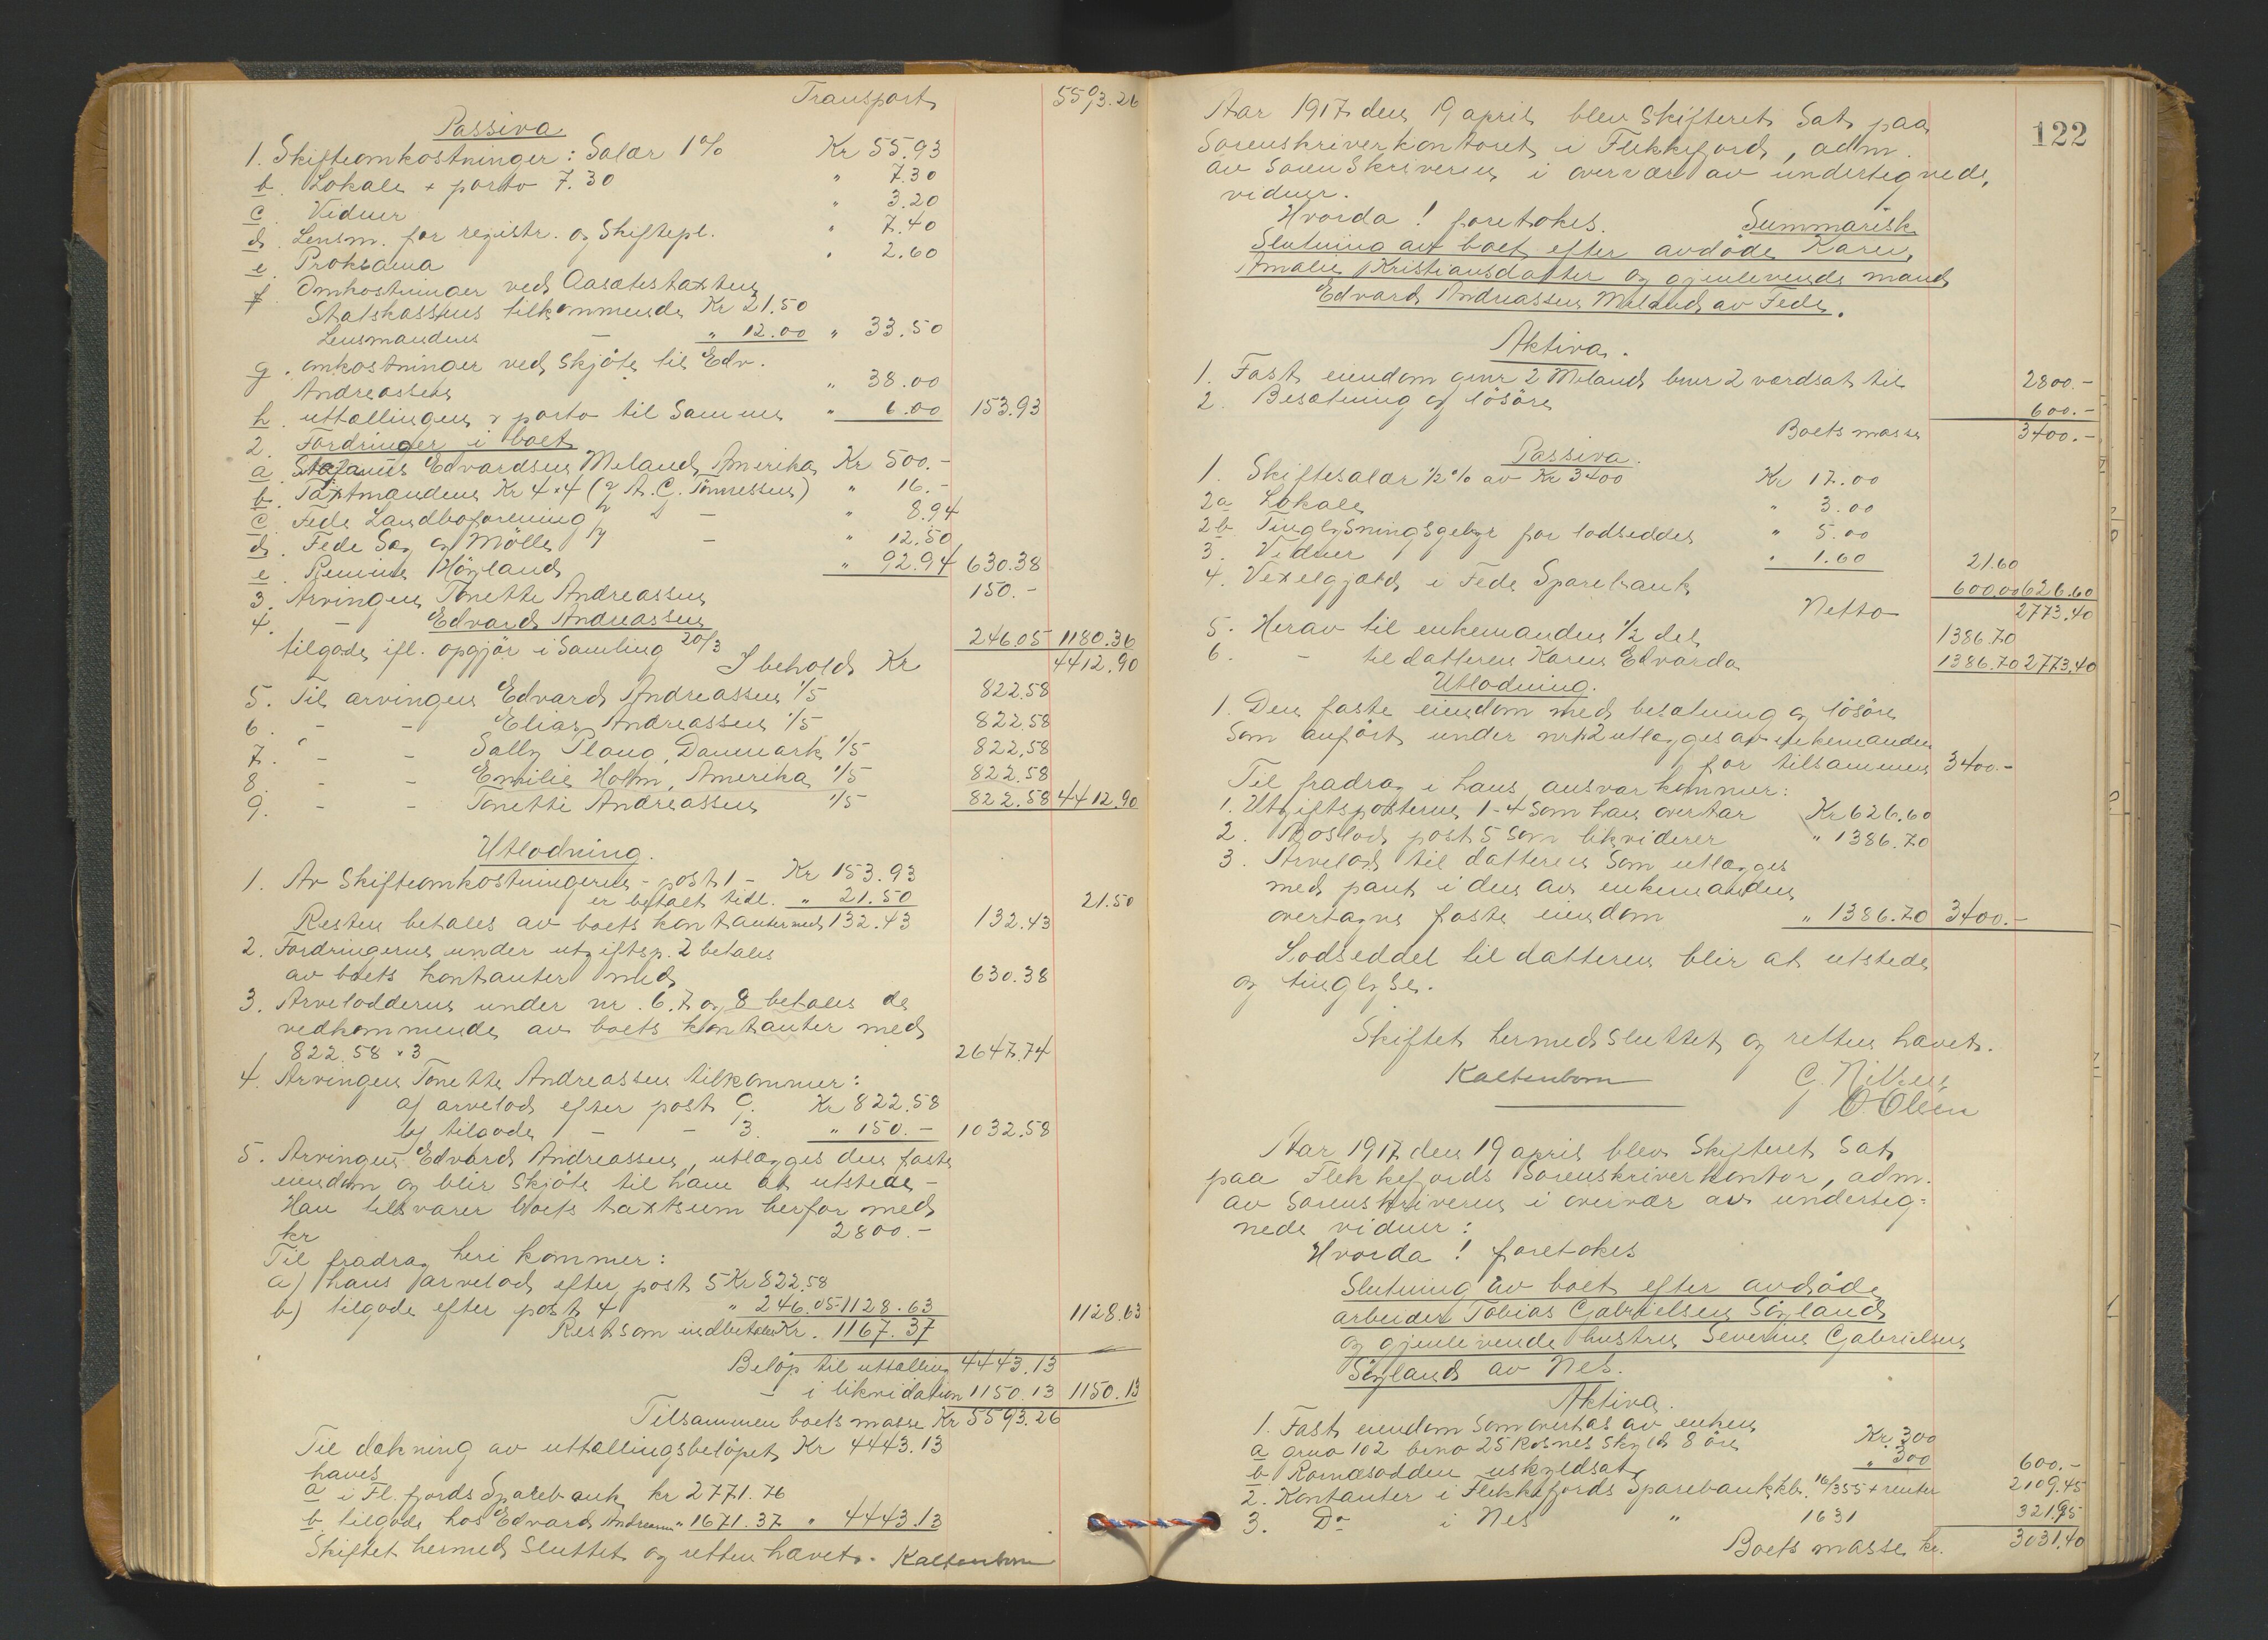 Transport 5593.26
Passiva
1. Skifteomkostninger: Salær 1% Kr 55.93
b. Lokale + porto 7.30 " 7.30
c. Vidner " 3.20
d. Lensm. for registr. og Skiftepl. " 7.40
e. Proklama " 2.60
f. Omkostninger ved Aasætestaxten
Statskassens tilkommende Kr 21.50
Lensmandens — " 12.00 " 33.50
g. omkostninger ved Skjöte til Edv.
Andreassen " 38.00
h. uttallingen & porto til Samme " 6.00 153.93
2. Fordringer i boet
a. Stefanus Edvardsen Meland, Amerika Kr 500.-
b. Taxtmandens Kr 4×4 (v A. G. Tönnessen) " 16.-
c. Fede Landboforening " 8.94
d. Fede Sag og Mölle — " 12.50
e. Remine Höyland " 92.94 630.38
3. Arvingen Tonette Andreassen 150.-
4. — Edvard Andreassen
tilgode ifl. opgjör i Samling 20/3 246.05 1180.36
I behold Kr 4412.90
5. Til arvingen Edvard Andreassen 1/5 822.58
6. - - Elias Andreassen 1/5 822.58
7. - - Sally Ploug, Danmark 1/5 822.58
8. - - Emilie Holm, Amerika 1/5 822.58
9. - - Tonette Andreassen 1/5 822.58 4412.90
Utlodning.
1. Av Skifteomkostningerne - post 1 - Kr 153.93
er betalt tidl. " 21.50 21.50
Resten betales av boets kontanter med 132.43 132.43
2. Fordringerne under utgiftsp. 2 betales
av boets kontanter med 630.38
3. Arvelodderne under nr. 6.7 og 8 betales de
vedkommende av boets kontanter med
822.58 × 3 2647.74
4. Arvingen Tonette Andreassen tilkommer:
a) arvelod efter post 9. Kr 822.58
b) tilgode — - 3. " 150.- 1032.58
5. Arvingen Edvard Andreassen, utlægges den faste
eiendom og blir Skjöte til ham at utstede -
Han tilsvarer boets taxtsum herfor med
kr 2800.-
Til fradrag heri kommer:
a) hans arvelod efter post 5 Kr 822.58
b) tilgode efter post 4 " 246.05 1128.63 1128.63
Rest som indbetales Kr. 1167.37
Belöp til uttalling 4443.13
- i likvidation 1150.13 1150.13
Tilsammen boets masse Kr 5593.26
Til dækning av uttallingsbelöpet Kr 4443.13
haves
a i Fl.fjords Sparebank kr 2771.76
b. tilgode hos Edvard Andreassen " 1671.37 " 4443.13
Skiftet hermed Sluttet og retten hævet. Kaltenborn
122
Aar 1917 den 19 april blev Skifteret Sat paa
Sorenskriverkontoret i Flekkefjord, adm.
av Sorenskriveren i overvær av undertegnede
vidner.
Hvorda! foretokes. Summarisk
Slutning av boet efter avdöde Karen
Amalie Kristiansdatter og gjenlevende mand
Edvard Andreassen Meland av Fede.
Aktiva.
1. Fast eiendom gnr 2 Meland bnr 2 værdsat til 2800.-
2. Besætning og lösöre 600.-
Boets masse 3400.-
Passiva.
1. Skiftesalær 1/2% av Kr 3400 Kr 17.00
2a Lokale " 3.00
2b Tinglysningsgebyr for lodseddel " 5.00
3. Vidner " 1.60 21.60
4. Vexelgjæld i Fede Sparebank 600.00 626.60
Netto 2773.40
5. Herav til enkemanden 1/2 del 1386.70
6. - til datteren Karen Edvarda 1386.70 2773.40
Utlodning.
1. Den faste eiendom med besætning og lösöre
Som anfört under nr 1-2 utlægges av enkemanden
for tilsammen 3400.-
Til fradrag i hans ansvar kommer:
1. Utgiftsposterne 1-4 Som han overtar Kr 626.60
2. Boslod post 5 Som likviderer " 1386.70
3. Arvelod til datteren Som utlægges
med pant i den av enkemanden
overtagne faste eiendom " 1386.70 3400.-
Lodseddel til datteren blir at utstede
og tinglyse.
Skiftet hermed Sluttet og retten hævet.
Kaltenborn C. Nilsen
O. Olsen
Aar 1917 den 19 april blev Skifteret Sat
paa Flekkefjords Sorenskriverkontor, adm.
av Sorenskriveren i overvær av underteg=
nede vidner:
Hvorda! foretokes
Slutning av boet efter avdöde
arbeider Tobias Gabrielsen Söyland
og gjenlevende hustru Severine Gabrielsen
Söyland av Nes.
Aktiva.
1. Fast eiendom Som overtas av enken
a gno 102 bno 25 Rosnes Skyld 8 öre Kr. 300
b. Ramesodden uskyldsat " 300 600.-
2. Kontanter i Flekkefjords Sparebank kb. 16/355 + renter 2109.45
3. Do i Nes " 1631 321.95
Boets masse kr. 3031.40